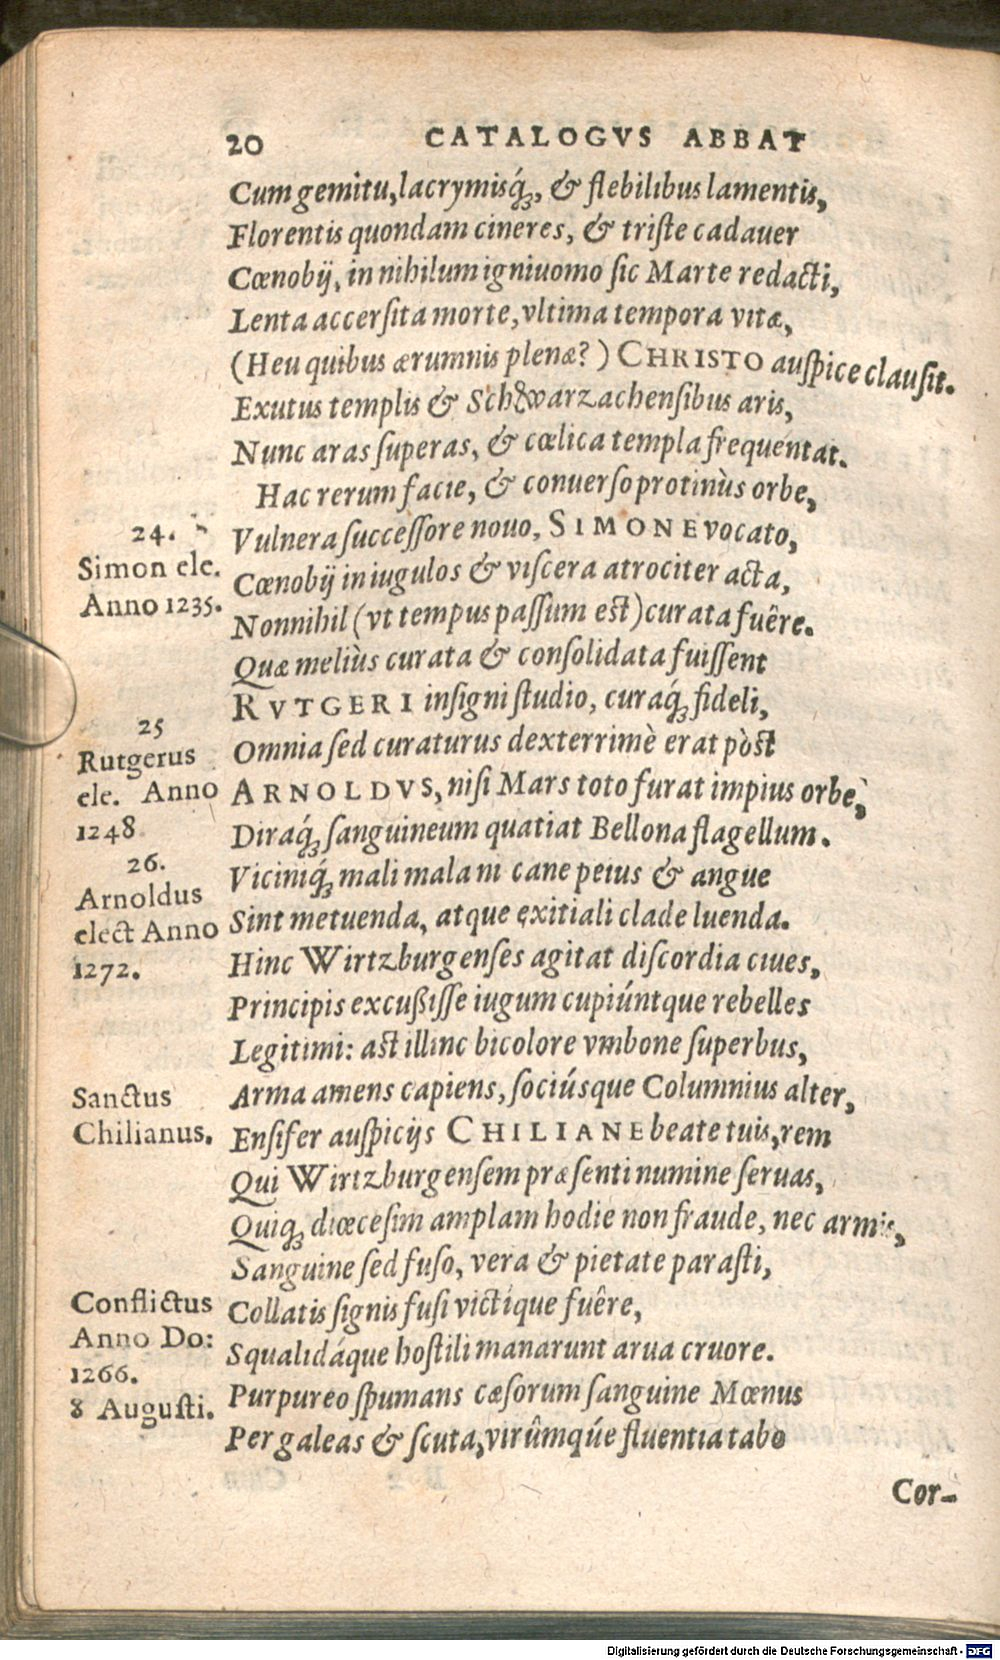 20 CATALOGVS ABBAT
Cum gemitu, lacrymisq́ꝫ, & flebilibus lamentis,
Florentis quondam cineres, & triſte cadauer
Cœnobij, in nihilum igniuomo ſic Marte redacti,
Lenta accerſita morte, vltima tempora vitæ,
(Heu quibus ærumnis plenæ?) CHRISTO auſpice clauſit.
Exutus templis & Schvvarzachenſibus aris,
Nunc aras ſuperas, & cœlica templa frequentat.
Hac rerum facie, & conuerſo protinùs orbe,
24.
Simon ele.
Anno 1235.
Vulnera ſucceſſore nouo, SIMONE vocato,
Cœnobij in iugulos & viſcera atrociter acta,
Nonnihil (vt tempus paſſum est) curata fuêre.
Quæ meliùs curata & conſolidata fuiſſent
RVTGERI inſigni ſtudio, curaq́ꝫ fideli,
25
Rutgerus
ele. Anno
1248
Omnia ſed curaturus dexterrimè erat pòst
ARNOLDVS, niſi Mars toto furat impius orbe,
Diraq́ꝫ ſanguineum quatiat Bellona flagellum.
26.
Arnoldus
elect Anno
1272.
Viciniq́ꝫ mali mala ni cane peius & angue
Sint metuenda, atque exitiali clade luenda.
Hinc Wirtzburgenſes agitat diſcordia ciues,
Principis excußiſſe iugum cupiúntque rebelles
Legitimi: ast illinc bicolore vmbone ſuperbus,
Arma amens capiens, ſociúsque Columnius alter,
Sanctus
Chilianus.
Enſifer auſpicijs CHILIANE beate tuis, rem
Qui Wirtzburgenſem præſenti numine ſeruas,
Quiqꝫ diœceſim amplam hodie non fraude, nec armis,
Sanguine ſed fuſo, vera & pietate paraſti,
Conflictus
Anno Do:
1266.
8 Auguſti.
Collatis ſignis fuſi victique fuêre,
Squalidáque hoſtili manarunt arua cruore.
Purpureo ſpumans cæſorum ſanguine Mœnus
Per galeas & ſcuta, virûmqúe fluentia tabo
Cor-
Digitalisierung gefördert durch die Deutsche Forschungsgemeinschaft - DFG